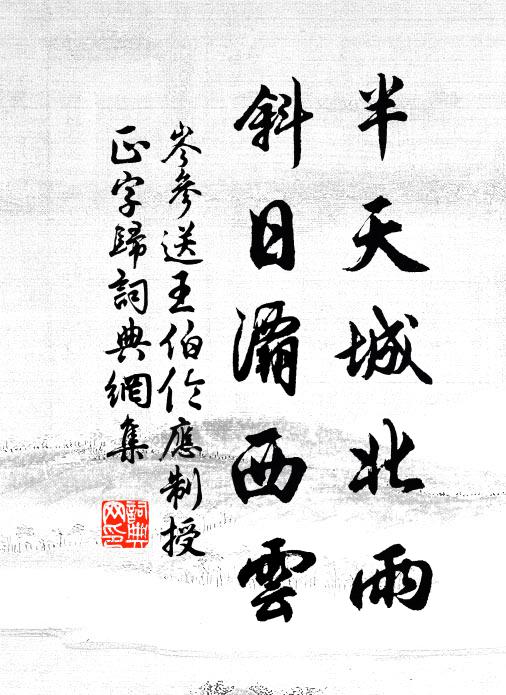 半天城北雨
斜日灞西雲
岑參送王伯伦應制授
正字歸詞典網集
詞典网印